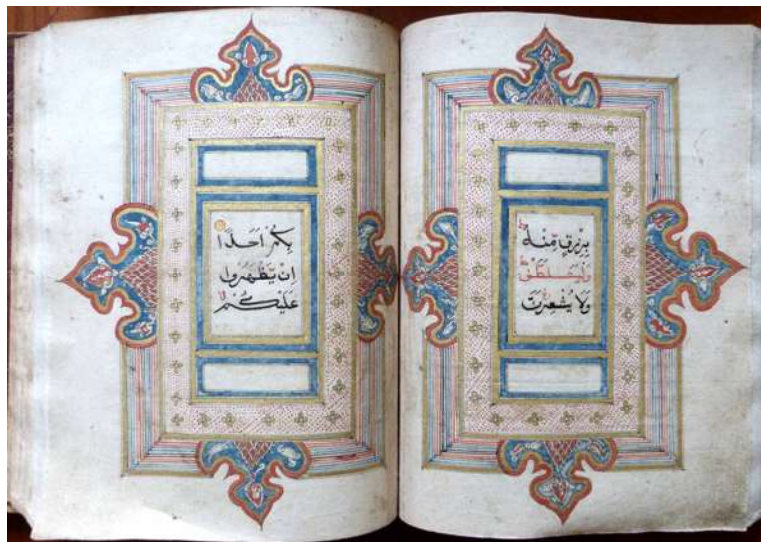 بِرِزْقٍ مِّنْهُ
وَلْيَتَلَطَّفْ
وَلَا يُشْعِرَنَّ
بِكُمْ أَحَدًا
إِنْ يَّظْهَرُوا
عَلَيْكُمْ